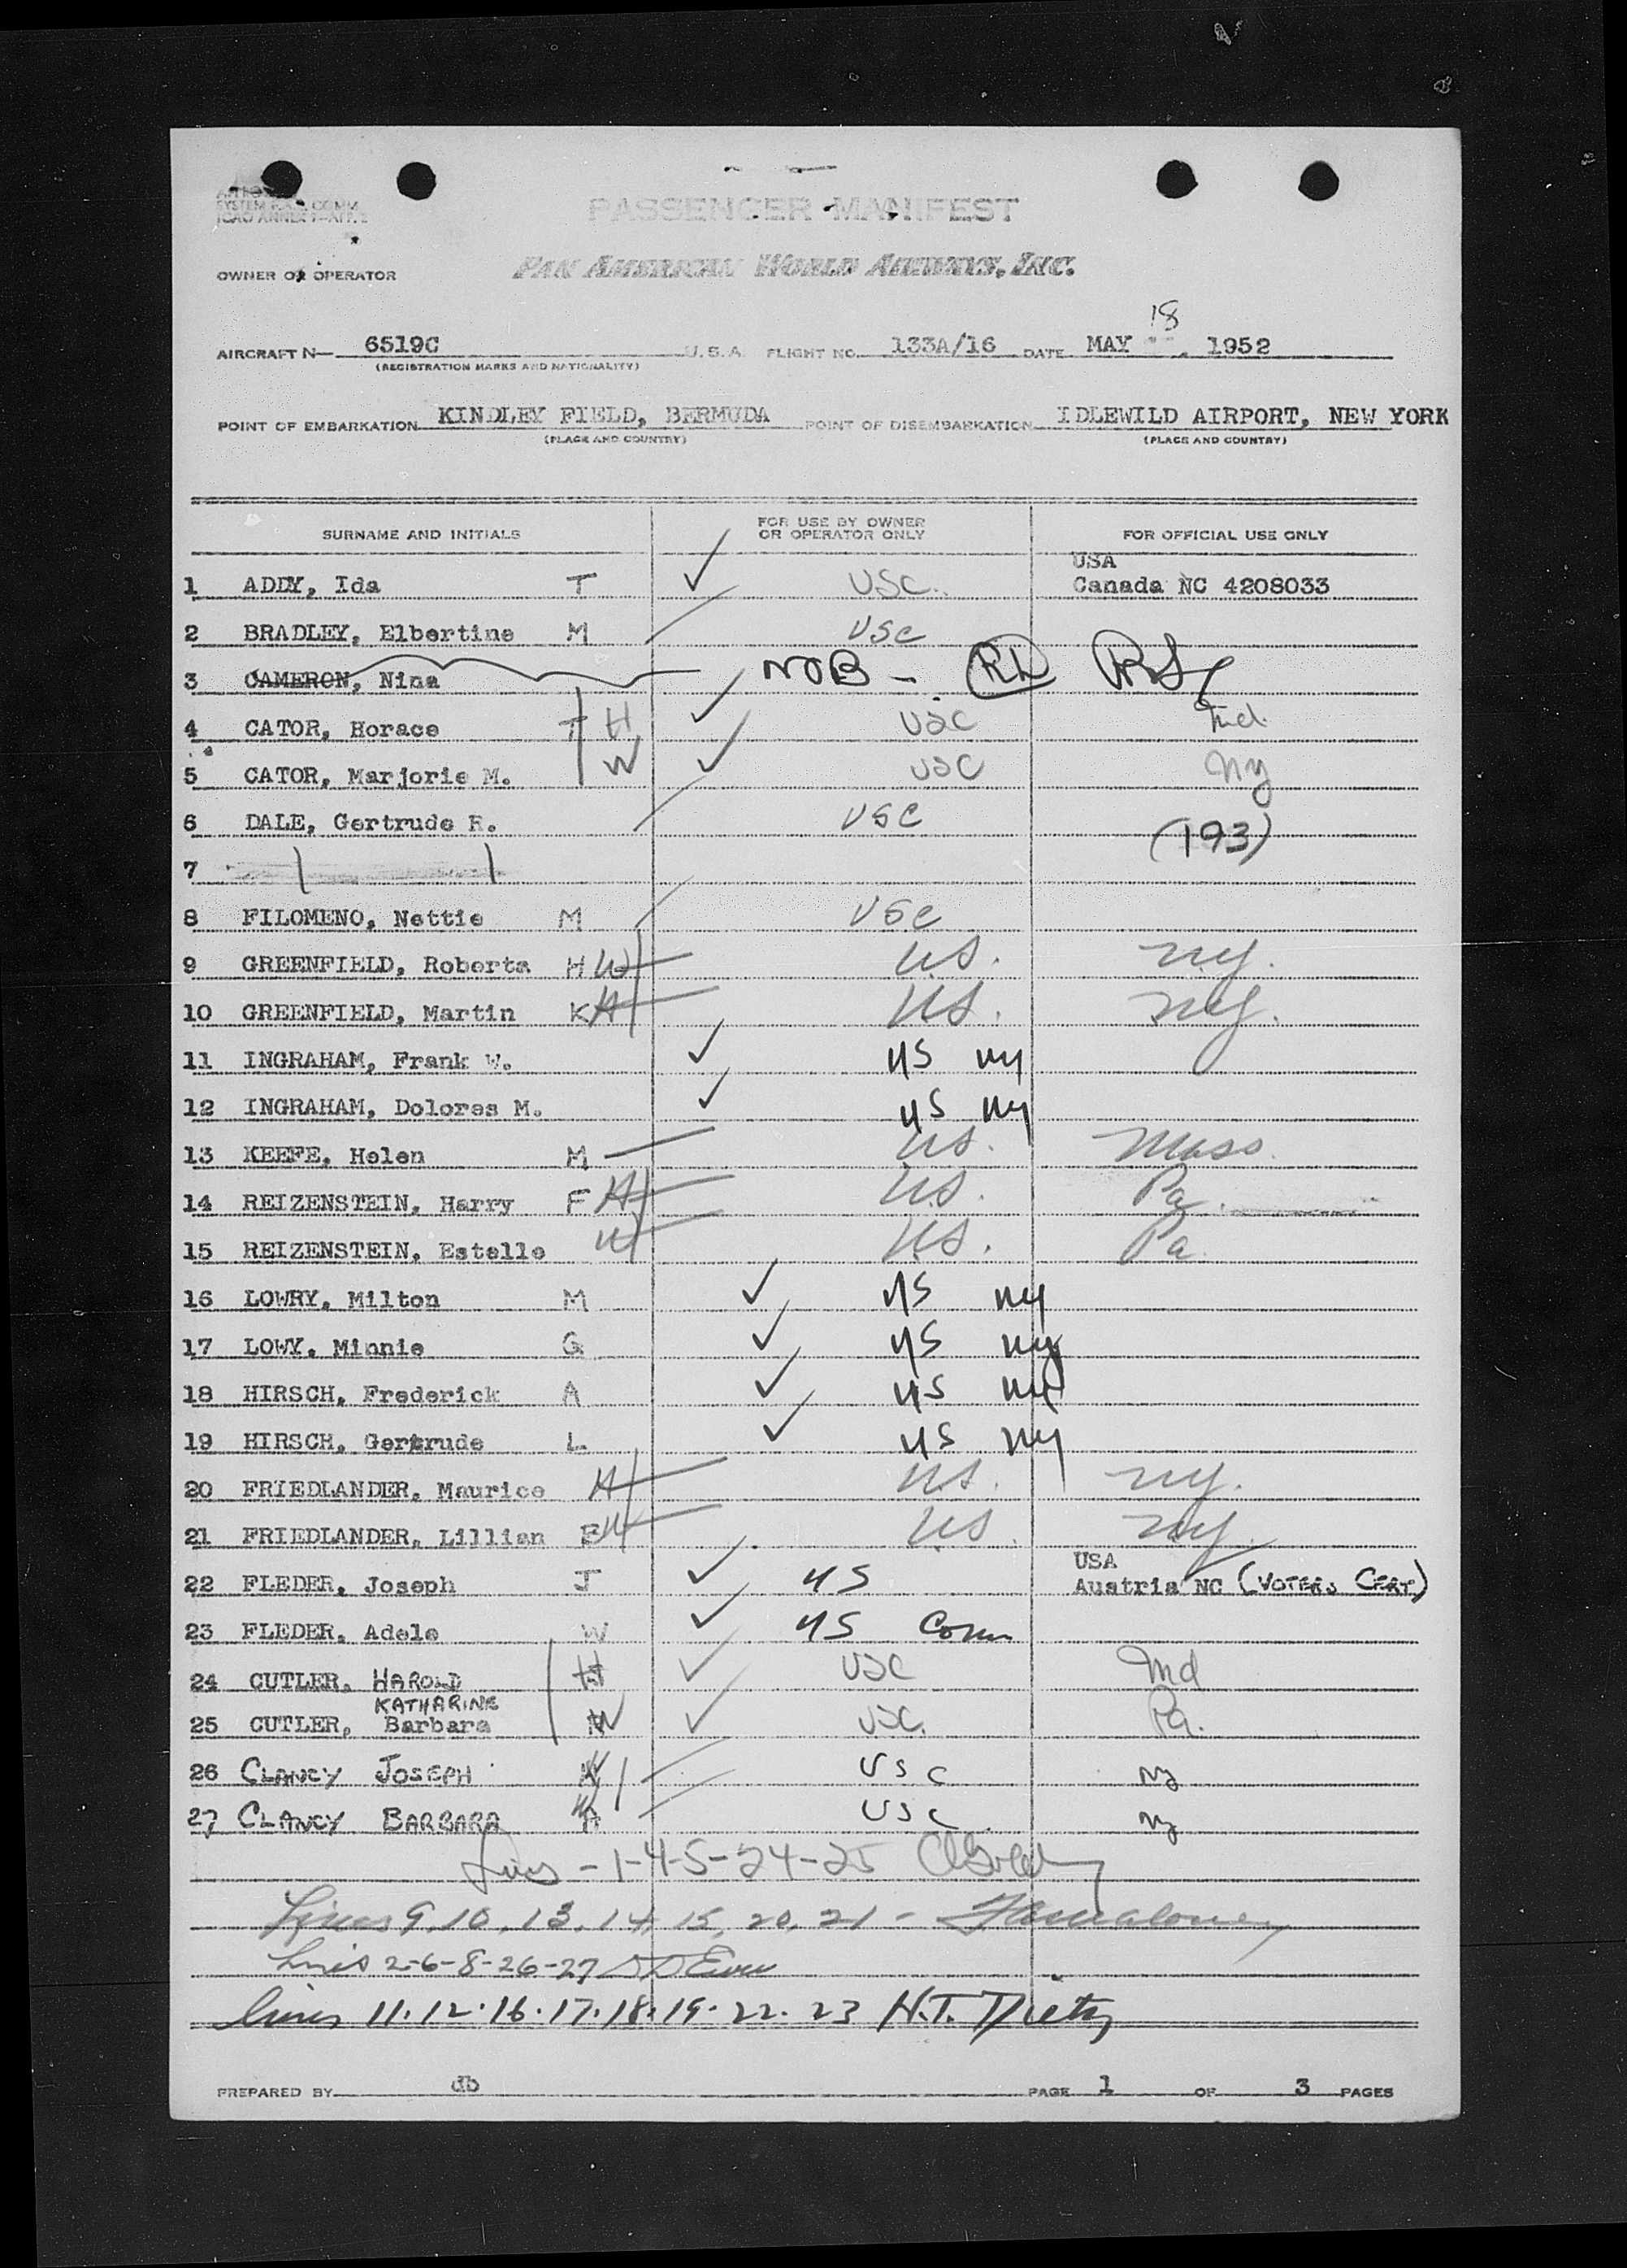 SYSTEM P.A.A. COMM
ICAO ANNEX 9—APP. 2
PASSENGER MANIFEST
OWNER OR OPERATOR PAN AMERICAN WORLD AIRWAYS, INC.
18
AIRCRAFT N— 6519C U.S.A. FLIGHT NO. 133A/16 DATE MAY , 1952
(REGISTRATION MARKS AND NATIONALITY)
POINT OF EMBARKATION KINDLEY FIELD, BERMUDA POINT OF DISEMBARKATION IDLEWILD AIRPORT, NEW YORK
(PLACE AND COUNTRY) (PLACE AND COUNTRY)
SURNAME AND INITIALS FOR USE BY OWNER OR OPERATOR ONLY FOR OFFICIAL USE ONLY
USA
1 ADDY, Ida T USC. Canada NC 4208033
2 BRADLEY, Elbertine M USC
3 CAMERON, Nina NOB -
4 CATOR, Horace T H USC Md.
5 CATOR, Marjorie M. W USC NY
6 DALE, Gertrude R. USC (193)
7
8 FILOMENO, Nettie M USC
9 GREENFIELD, Roberta H W U.S. N.Y.
10 GREENFIELD, Martin K H U.S. N.Y.
11 INGRAHAM, Frank W. US NY
12 INGRAHAM, Dolores M. US NY
13 KEEFE, Helen M U.S. Mass.
14 REIZENSTEIN, Harry F H U.S. Pa.
15 REIZENSTEIN, Estelle W U.S. Pa.
16 LOWRY, Milton M US NY
17 LOWY, Minnie G US NY
18 HIRSCH, Frederick A US NY
19 HIRSCH, Gertrude L US NY
20 FRIEDLANDER, Maurice H U.S. N.Y.
21 FRIEDLANDER, Lillian B W U.S. N.Y.
USA
22 FLEDER, Joseph J US Austria NC (VOTERS CERT)
23 FLEDER, Adele W US Conn
24 CUTLER, HAROLD H USC Md
KATHARINE
25 CUTLER, Barbara W USC. Pa.
26 CLANCY JOSEPH USC NY
27 CLANCY BARBARA A USC NY
Lines - 1-4-5-24-25
Lines 9, 10, 13, 14, 15, 20, 21 -
Lines 2-6-8-26-27
lines 11.12.16.17.18.19.22.23 H.T. Dietz
PREPARED BY db PAGE 1 OF 3 PAGES